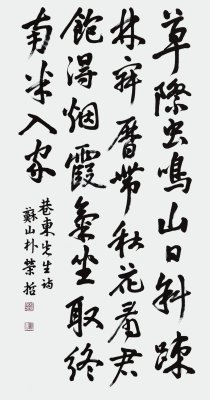 草際虫鳴山日斜疎
林寂曆帶秋花看君
飽得烟霞氣坐取終
南半入家
巷東先生詩
蘇山朴榮哲